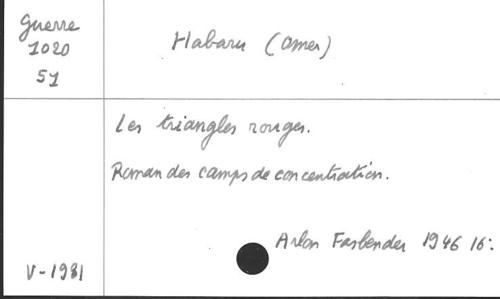 Guerre
1020
51
Habaru (Omer)
Les triangles rouges.
Roman des camps de concentration.
Arlon Fasbender 1946 16:
V-1981